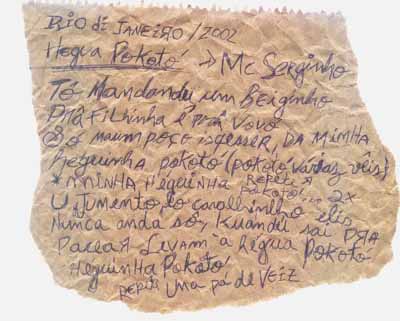 RIO di JANEIRO/2002
Hegua Pokotó → Mc Serginho
Tô Mandandu um Beiginho
Prá filhinha é prá Vovó
Só naum poço isqesser, DA MiMHA
heguinha pokotó (pokotó várias veis)
*MINHA Heguinha Repeti A pokotó... 2x
U jumento lo cavalhinho elis
Nunca anda só, kuandu sai PRA
paceaR Levam a Régua POKOTÓ
Heguinha Pokotó
Repiti uma pá de VEIZ